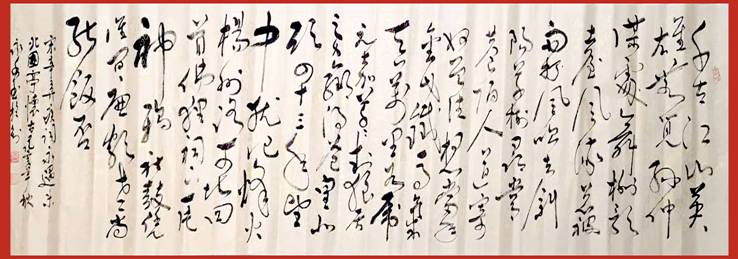 千古江山英
雄无觅孙仲
谋处舞榭歌
台风流总被
雨打风吹去斜
阳草树寻常
巷陌人道寄
奴曾住想当年
金戈铁马气
吞万里如虎
元嘉草草封狼居
胥赢得仓皇北
顾四十三年望
中犹记烽火
楊州路可堪回
首佛狸祠下一片
神鸦社鼓凭
谁问廉颇老矣尚
能饭否
宋辛弃疾词永遇乐京
北固亭怀古